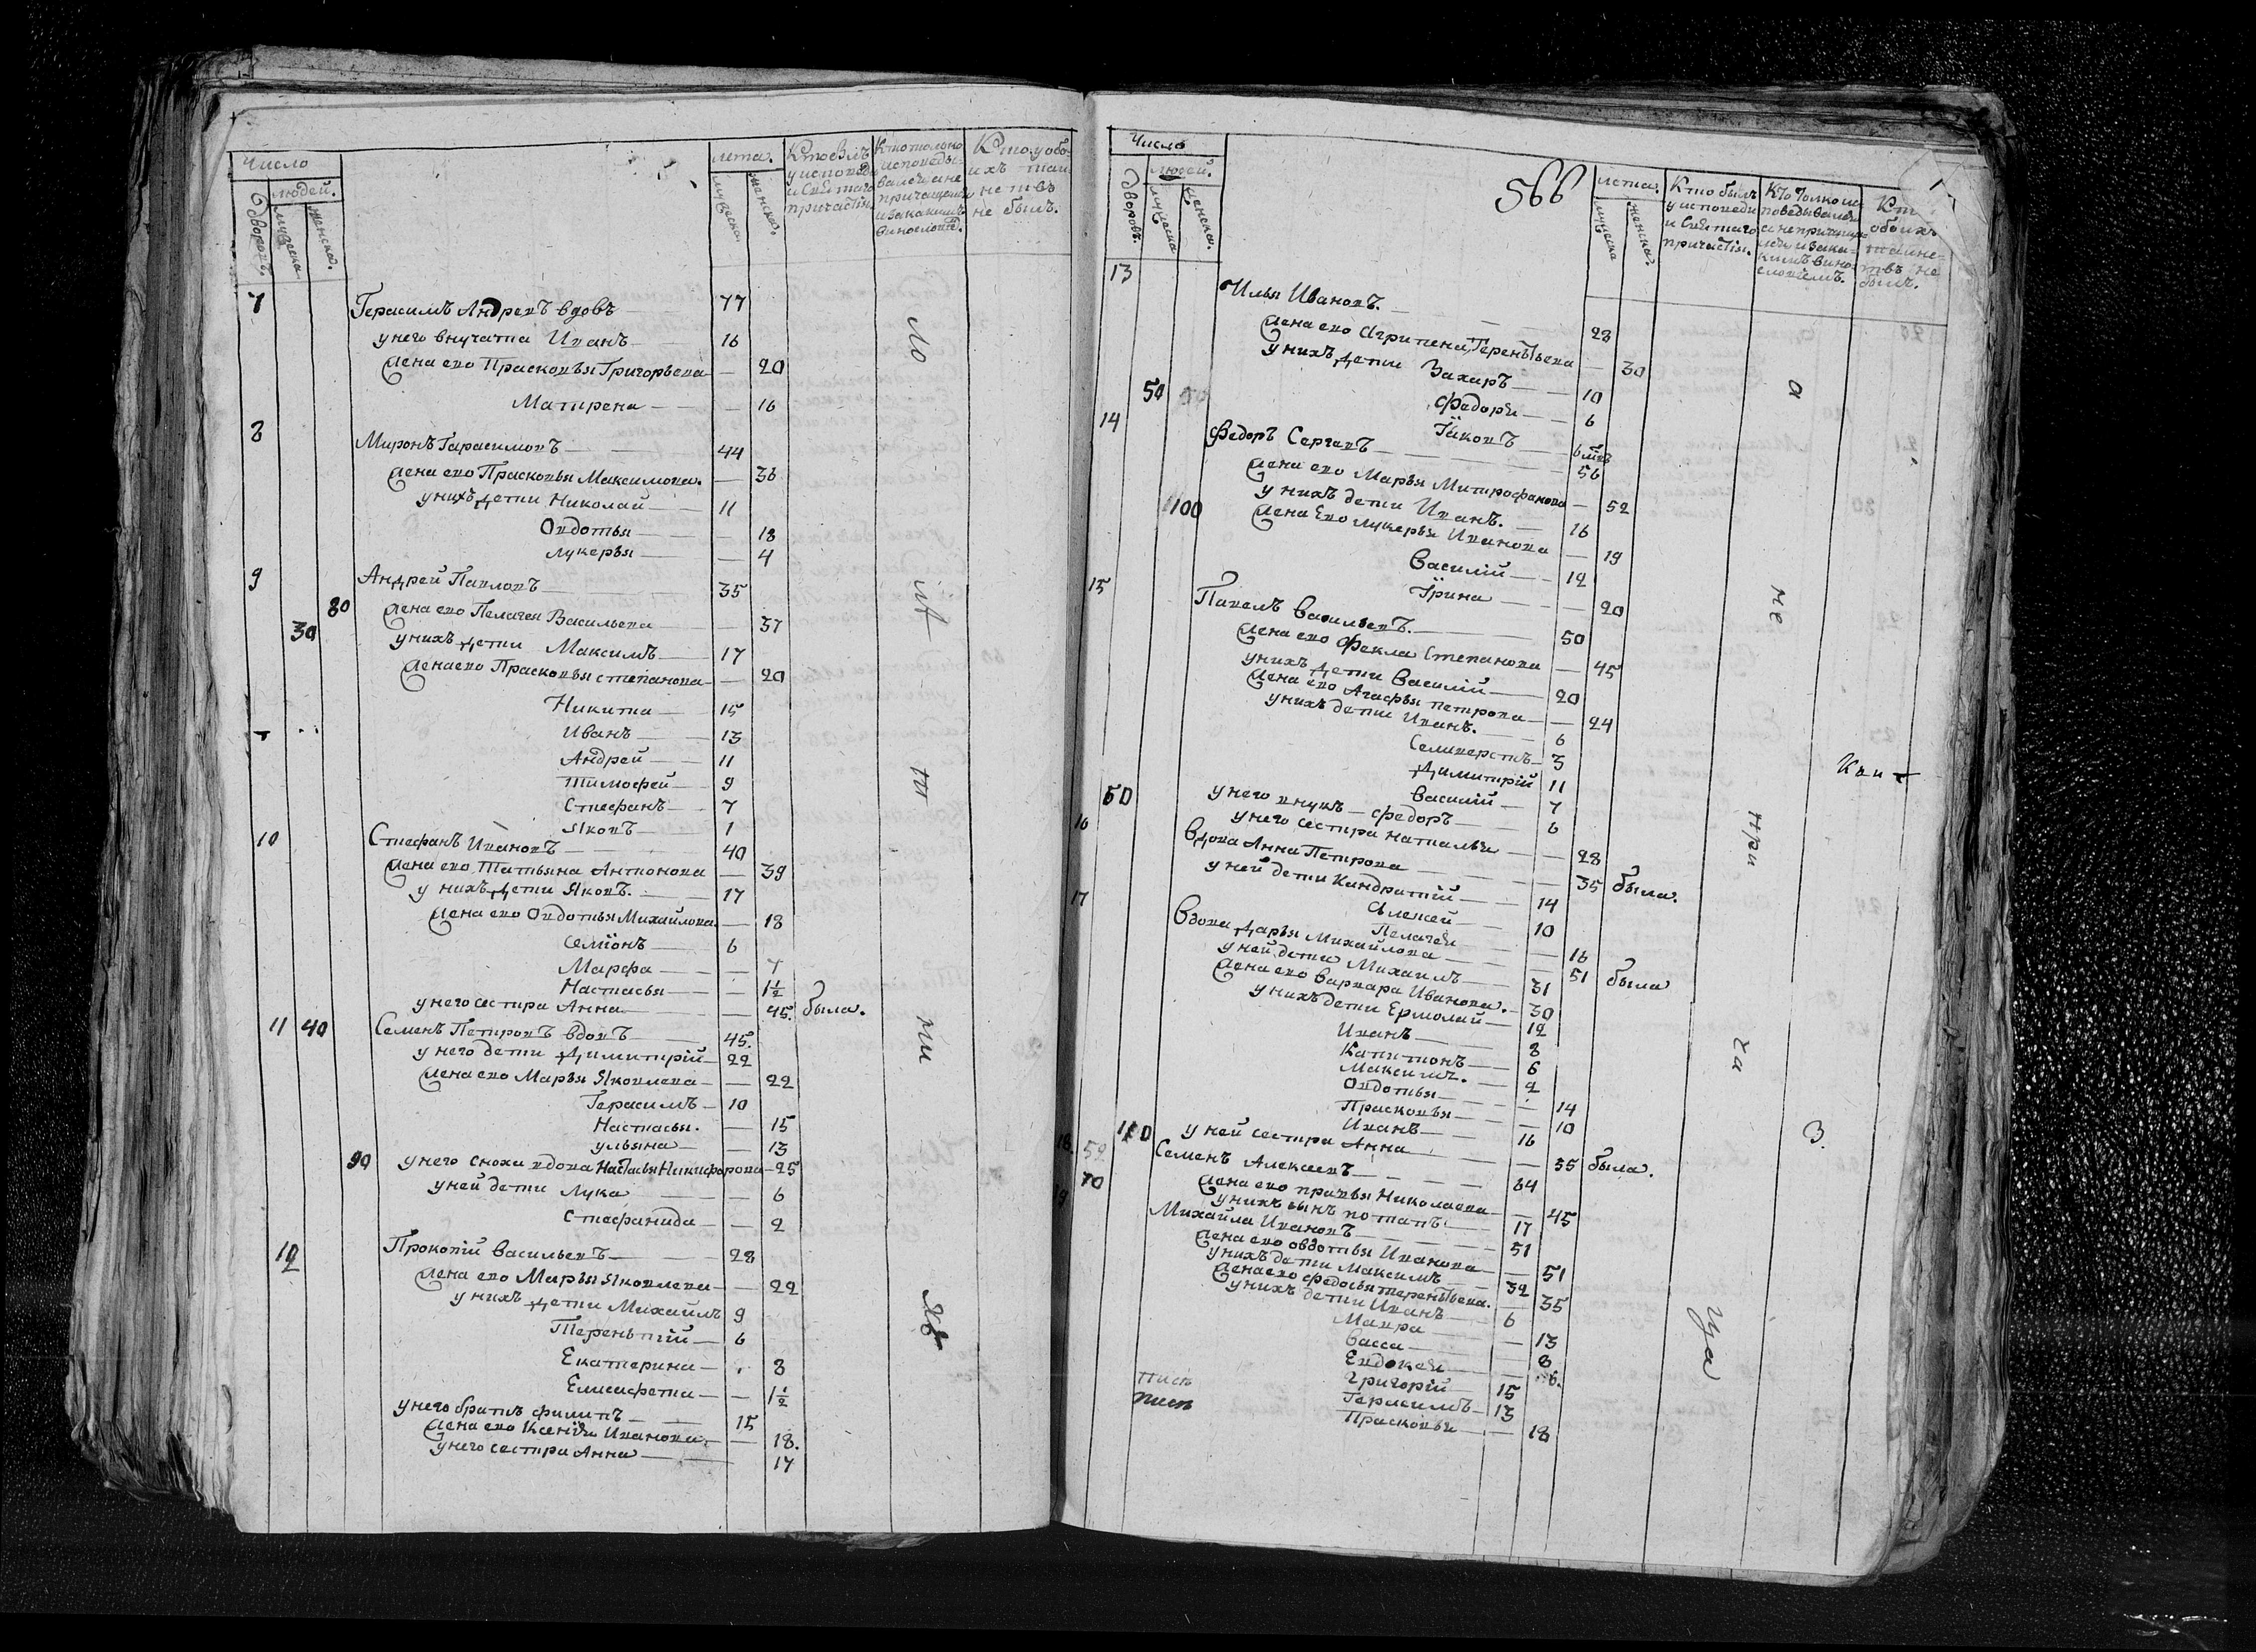 Число
людей.
дворовъ.
мужеска
женска.
лета.
мужеска.
женска.
Кто былъ
у исповеди
и Святаго
причастія
Кто только
исповеды-
вался а не
причащался
и за какимъ
винословіемъ.
Кто у обо-
ихъ таи
не твъ
не былъ.
7 Герасимъ Андреевъ вдовъ 77
у него внучата Иванъ 16
жена ево Прасковья Григорьева 20
Матрена 16
8
Миронъ Гарасимовъ 44
жена ево Прасковья Максимова. 36
у нихъ дети Николай 11
Овдотья 18
Лукерья 4
9 Андрей Павловъ 35
80 жена ево Пелагея Васильева 37
30 у нихъ дети Максимъ 17
жена ево Прасковья Степанова 20
Никита 15
Иванъ 13
Андрей 11
Тимофей 9
Стефанъ 7
Яковъ 1
10 Стефанъ Ивановъ 40
жена ево Татьяна Антонова 39
у нихъ дети Яковъ. 17
жена ево Овдотья Михайлова 18
Семіонъ 6
Марфа 7
Настасья 1 1/2
у него сестра Анна 45. была.
11 40 Семенъ Петровъ вдовъ 45.
у него дети Димитрій 22
жена ево Марья Яковлева 22
Герасимъ 10
Настасья. 15
Ульяна 13
90 у него сноха вдова Настасья Никифорова 25
у ней дети Лука 6
Стефанида 2
12 Прокопій Васильевъ 28
жена ево Марья Яковлева 22
у нихъ дети Михайлъ 9
Тереньтій 6
Екатерина 8
Елисафета 1 1/2
у него братъ Филипъ 15
жена ево Ксенія Иванова. 18.
у него сестра Анна 17
566
Число
людей.
дворовъ.
мужеска
женска.
лета.
мужеска
женска.
Кто былъ
у исповеди
и Святаго
причастія.
Кто толко ис
поведывался
а не причаща-
лся и за ка-
кимъ вино-
словіемъ.
обоихъ
таине-
твъ не
былъ.
13
Илья Ивановъ. 28
жена ево Агрипена Терентьева 30
у нихъ дети Захаръ 10
50 Федоръ 6
Іаковъ
14 Федоръ Сергеевъ 56
жена ево Марья Митрофанова 52
у нихъ дети Иванъ. 16
100 жена Ево Лукерья Иванова 19
Василій 12
Ірина 20
15
Павелъ Васильевъ. 50
жена ево Фекла Степанова 45
у нихъ дети Василій 20
жена ево Агафья Петрова 24
у нихъ дети Иванъ. 6
Селиверстъ 3
Димитрій 11
Василій 7
60 у него внукъ Федоръ 6
у него сестра Наталья 28
16 Вдова Анна Петрова 35 была.
у ней дети Кандратій 14
Алексей 10
Пелагея 16
17 Вдова Дарья Михайлова 51 была
у ней дети Михаилъ 31
жена ево Варвара Иванова. 30
у нихъ дети Ермолай 12
Иванъ 8
Капитонъ 6
Максимъ. 2
Овдотья 14
Прасковья 10
Иванъ 16
110 у ней сестра Анна 55 была.
18. Семенъ Алексеевъ 64
70 45
у нихъ сынъ Потапъ 17
19 Михайла Ивановъ 51
жена ево Овдотья Иванова 51
у нихъ дети Максимъ 32
жена ево Федосья Терентьева. 35
у нихъ дети Иванъ 6
Мавра 13
Васса 8
Евдокея 6.
Григорій 15
Герасимъ 13
Прасковья 18